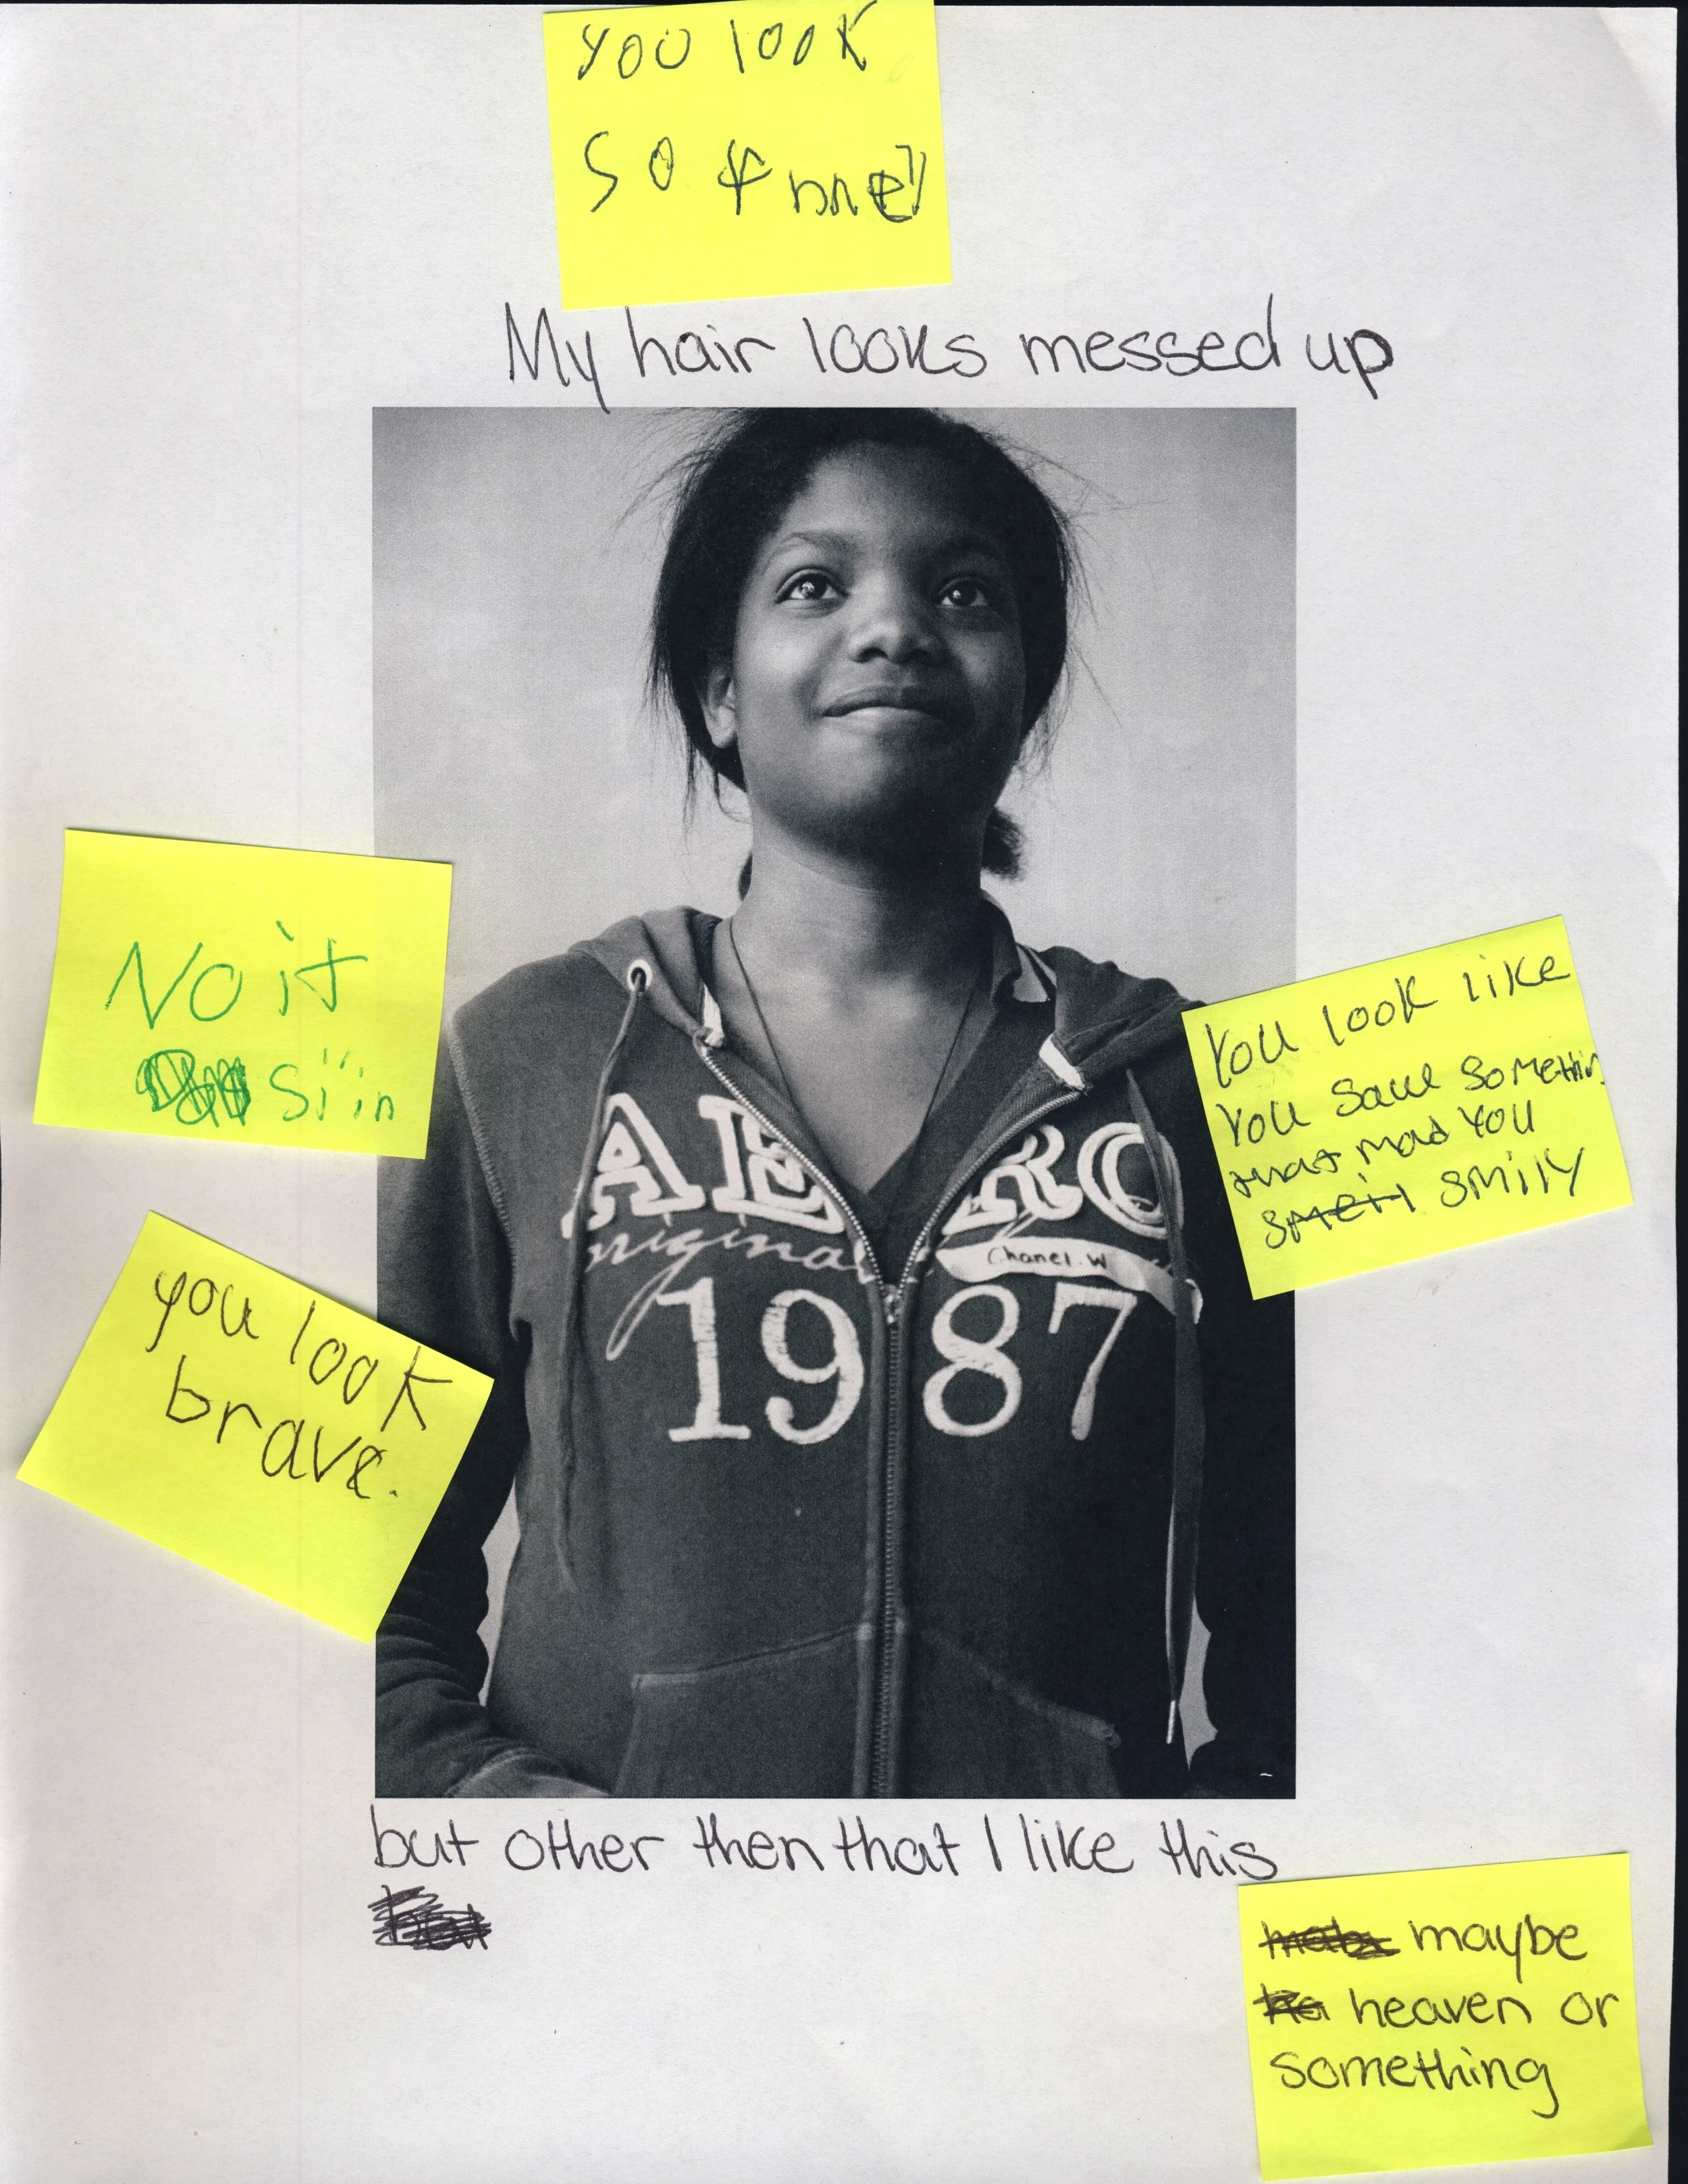 you look
so
My hair looks messed up
No it
si'in
You look like
You saw somethin
that mad you
smeil smily
you look
brave.
AERO
original
Chanel.W
1987
but other then that I like this
maybe
heaven or
something